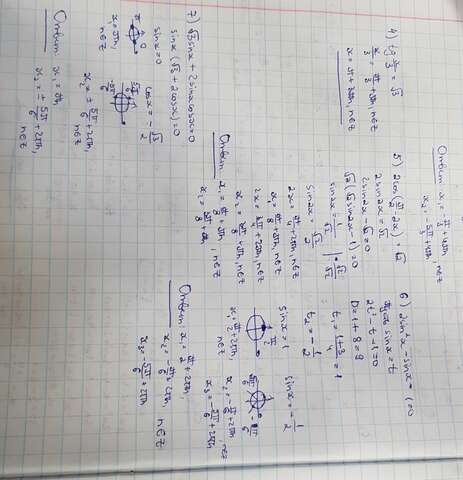 Ответ: x₁ = -π/2 + 4πn, n∈Z
x₂ = -5π/3 + 4πn
4) tg x/3 = √3
x/3 = π/3 + πn, n∈Z
x = π + 3πn, n∈Z
5) 2cos(π/2 - 2x) = √2
2sin2x = √2
2sin2x - √2 = 0
√2(√2sin2x - 1) = 0
sin2x = 1/√2 | · √2
sin2x = √2/2
2x = π/4 + 2πn, n∈Z
x = π/8 + πn, n∈Z
2x = 3π/4 + 2πn, n∈Z
x₂ = 3π/8 + πn, n∈Z
Ответ: x₁ = π/8 + πn, n∈Z
x₂ = 3π/8 + πn,
6) 2sin²x - sinx - 1 = 0
sinx = t
2t² - t - 1 = 0
D = 1 + 8 = 9
t₁ = 1+3/4 = 1
t₂ = -1/2
sinx = 1
π/2
x₁ = π/2 + 2πn, n∈Z
sinx = -1/2
-5π/6 -π/6
x₂ = -π/6 + 2πn, n∈Z
x₃ = -5π/6 + 2πn
Ответ: x₁ = π/2 + 2πn,
x₂ = -π/6 + 2πn, n∈Z
x₃ = -5π/6 + 2πn
7) √3sinx + 2sinxcosx = 0
sinx(√3 + 2cosx) = 0
sinx = 0
π 0
x₁ = πn, n∈Z
cosx = -√3/2
5π/6
-5π/6
x₂ = ± 5π/6 + 2πn, n∈Z
Ответ: x₁ = πn,
x₂ = ± 5π/6 + 2πn, n∈Z